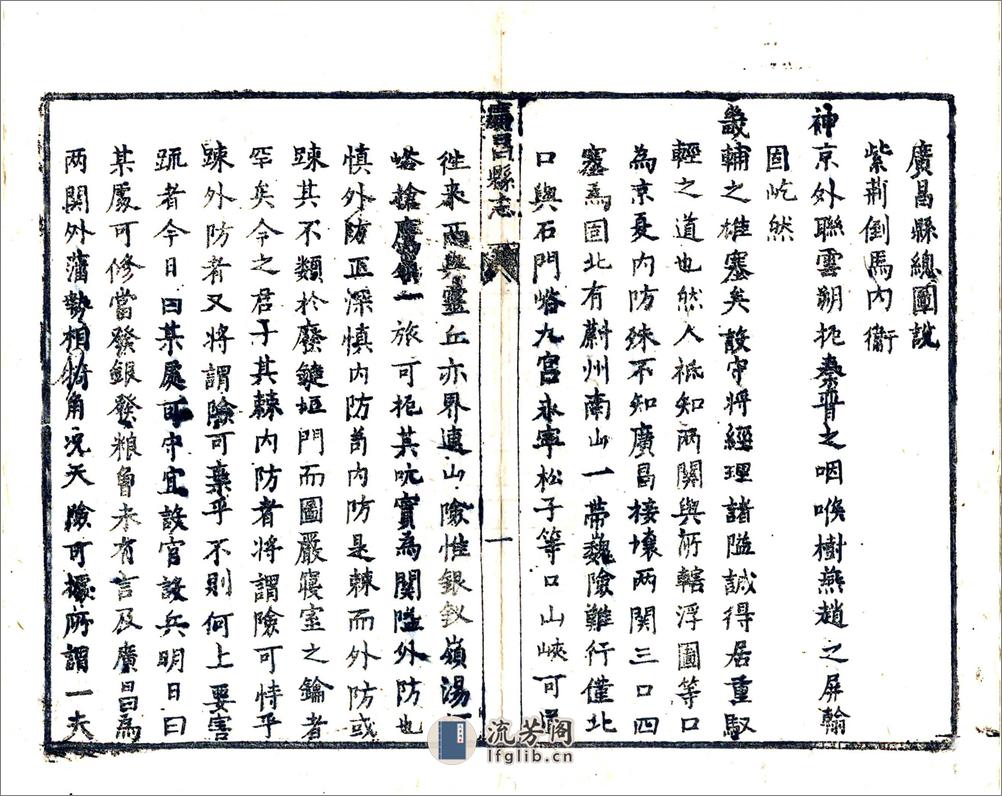 廣昌縣總圖說
紫荆倒馬內衞
神京外聯雲朔扼秦晉之咽喉樹燕趙之屏翰
固屹然
畿輔之雄塞矣設守將經理諸隘誠得居重馭
輕之道也然人祗知两關與所轄浮圖等口
為京夏內防殊不知廣昌接壤两関三口四
塞為固北有蔚州南山一帶巍險難行僅北
口與石門峪九宫永寧松子等口山峽可
廣昌縣志
一
徃来西與靈丘亦界連山險惟銀釵嶺湯
峪搶鷹嶺一旅可扼其吭實為関隘外防也
慎外防正深慎內防苐內防是棘而外防或
踈其不類於廢鍵垣門而圖嚴寢室之鑰者
罕矣今之君子其棘內防者将謂險可恃乎
踈外防者又将謂險可棄乎不則何上要害
疏者今日曰某處可守宜設官設兵明日曰
某處可修當發銀發粮曾未有言及廣昌為
两関外藩勢相犄角况天險可據所謂一夫
流芳阁
lfglib.cn